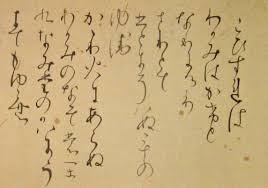 こひすれは
わかみはかけと
なりにけり
さりとて
ひとにそはぬもの
ゆゑ
かゝり火にあらぬ
わかみのなそもかく
なみたのかはにうき
てもゆらむ